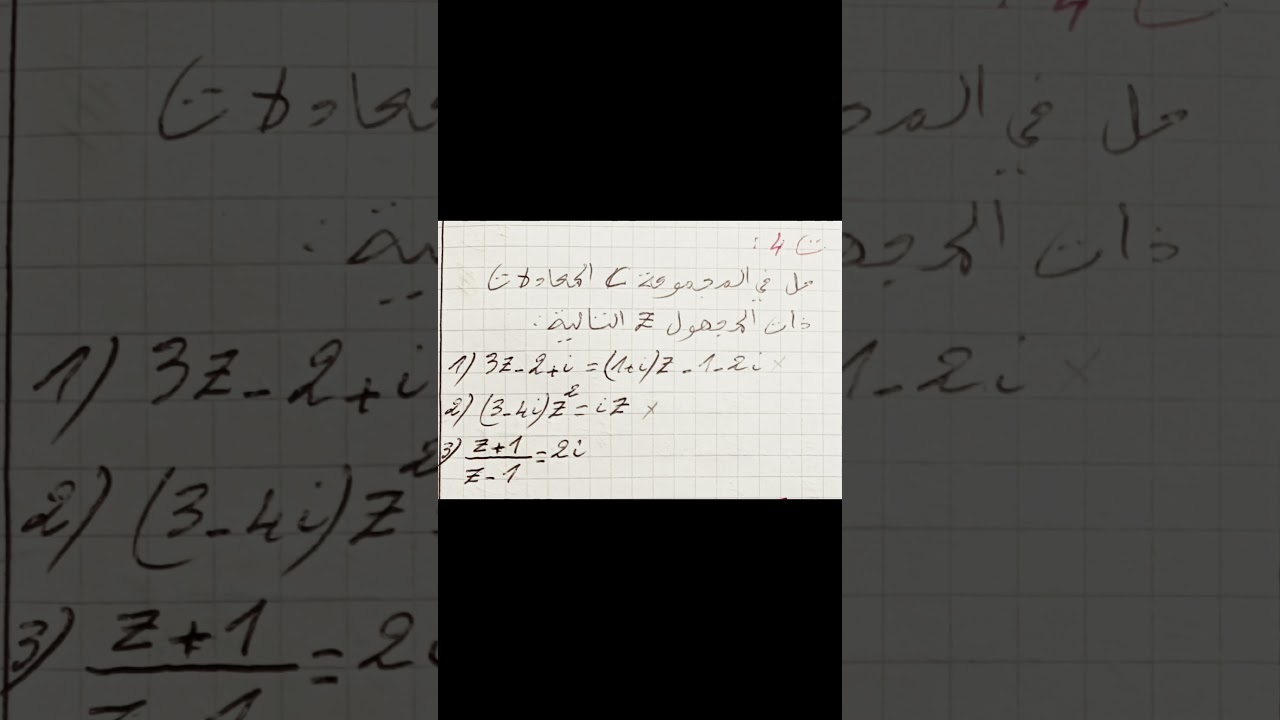 ت 4 :
حل في المجموعة C المعادلات
ذات المجهول Z التالية :
1) 3Z - 2 + i = (1+i)Z - 1 - 2i ×
2) (3-4i)Z² = iZ ×
3) \frac{Z+1}{Z-1} = 2i